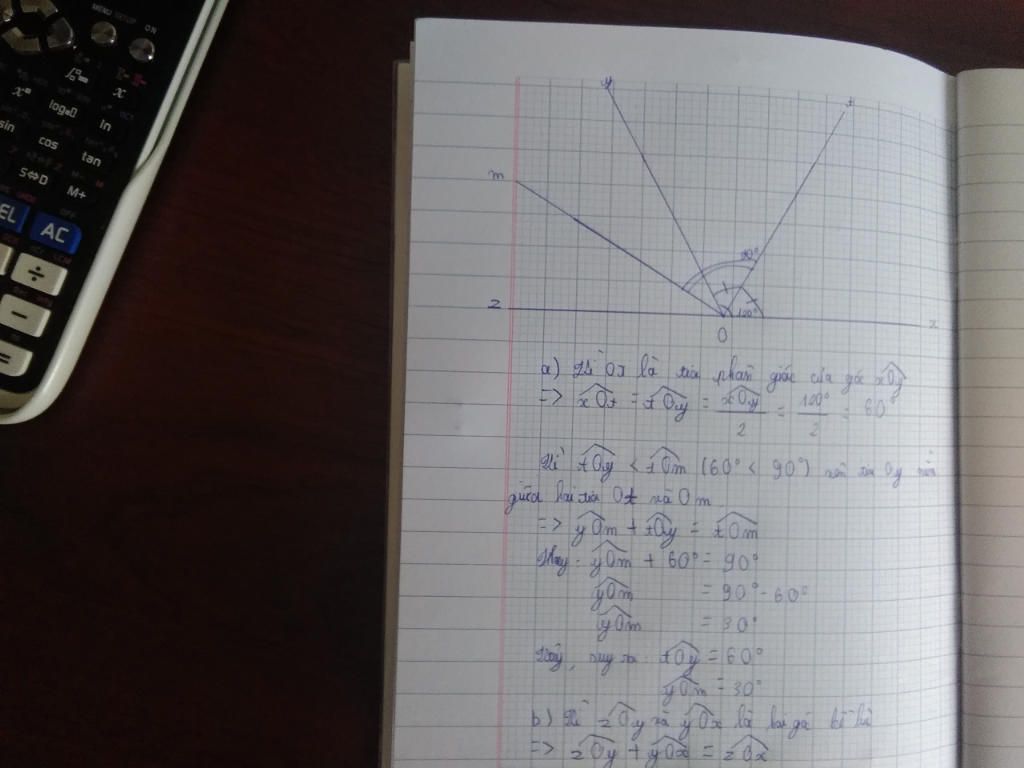 MENU SETUP
ON
x
log
ln
sin
cos
tan
S⇔D
M+
OFF
AC
÷
−
=
y
t
m
90°
z
120°
x
O
a) Vì Ot là tia phân giác của góc xOy
=> xOt = tOy = xOy/2 = 120°/2 = 60°
Vì tOy < tOm (60° < 90°) nên tia Oy nằm
giữa hai tia Ot và Om
=> yOm + tOy = tOm
Thay: yOm + 60° = 90°
yOm = 90° - 60°
yOm = 30°
Vậy, suy ra: tOy = 60°
yOm = 30°
b) Vì zOy và yOx là hai góc kề bù
=> zOy + yOx = zOx